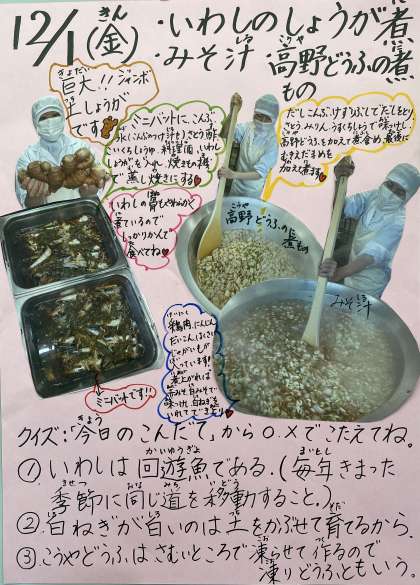 12/1(金) ・いわしのしょうが煮
・みそ汁 ・高野どうふの煮
もの
巨大!! ジャンボ
土しょうが
です
ミニバットに、こんぶ
水(こんぶつけ汁も)さとう、酢
こいくちしょうゆ、料理酒、いわし
しょうがを入れ、焼きもの機
で蒸し焼きにする♥
だしこんぶ、けずりぶしで だしをとり
さとう、みりん、うすくちしょうゆで味つけし
高野どうふを加えて煮含め、最後に
むきえだまめを
加え煮ます♥
いわしの骨もやわらかく
煮ているので
しっかりかんで
食べてね♥
高野どうふの煮もの
みそ汁
鶏肉、にんじん
だいこん、はくさい
じゃがいもが
入っています!
煮上がれば
赤みそ、白みそで
味つけし、白ねぎを
いれてできあがり♥
ミニバットです!!
クイズ:「今日のこんだて」から〇.×でこたえてね。
① いわしは回遊魚である.(毎年きまった
季節に同じ道を移動すること。)
② 白ねぎが白いのは土をかぶせて育てるから.
③ こうやどうふはさむいところで凍らせて作るので
凍りどうふともいう.